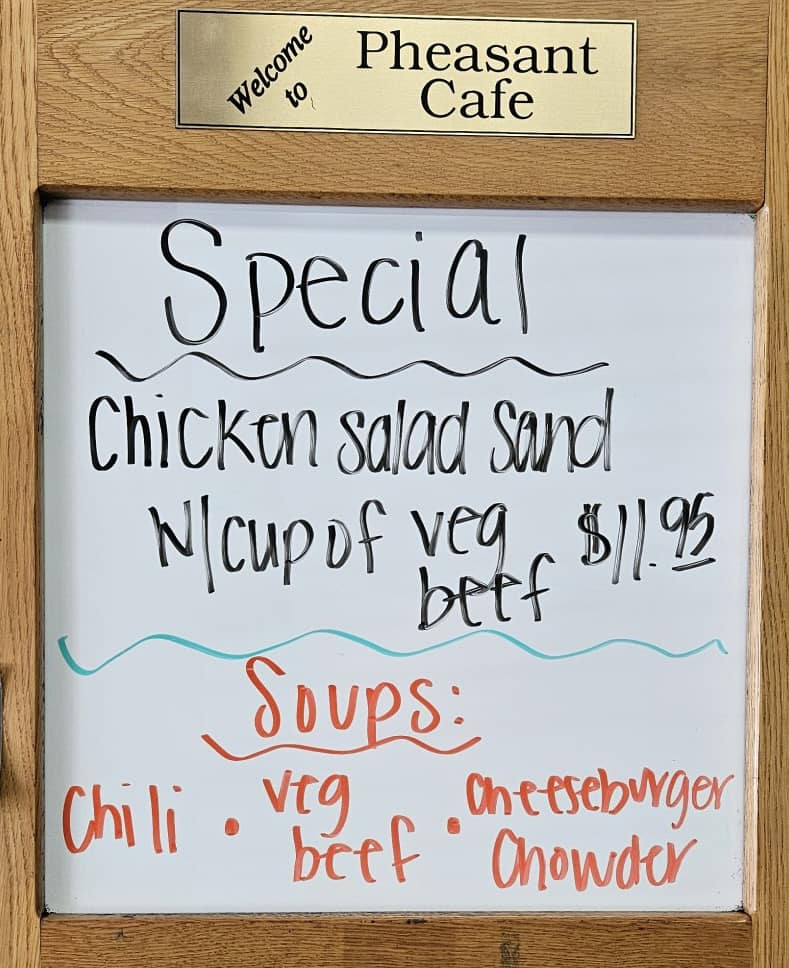 Welcome to
Pheasant
Cafe
Special
Chicken salad Sand
W/cup of veg beef $11.95
Soups:
Chili • veg beef • Cheeseburger Chowder